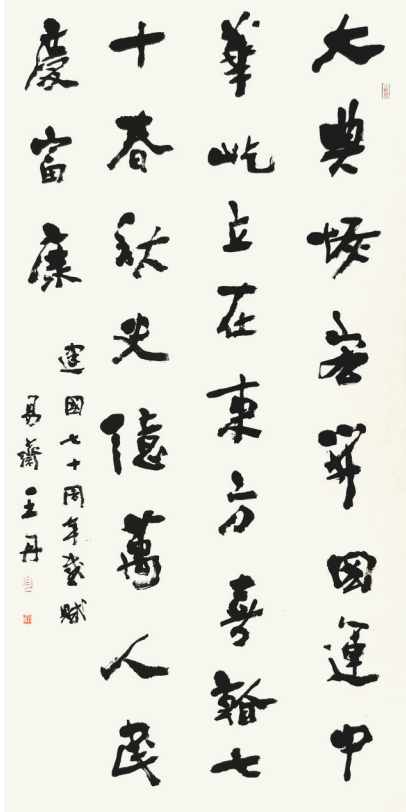 大典恢宏開国運中
華屹立在東方喜七
十春秋史億萬人民
慶富康
建國七十周年感賦
易齋王丹